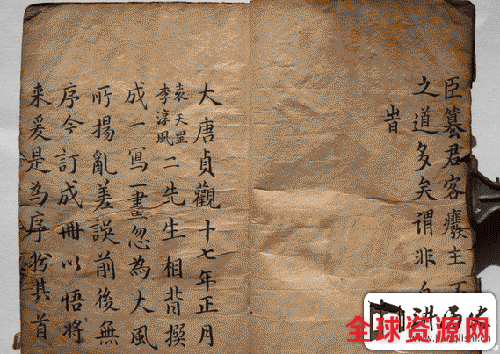 臣篡君客主
之道多矣謂非
皆
大唐貞觀十七年正月
袁天罡
李淳風
二先生相背撰
成一寫一畫忽為大風
所揚亂差誤前後無
序今訂成冊以悟將
來爰是為序於其首
全球资源网